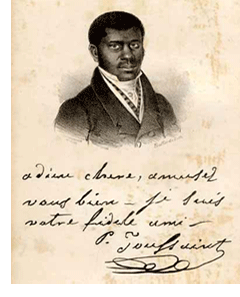 adieu chere, amusez
vous bien – je suis
votre fidele ami –
P. Toussaint